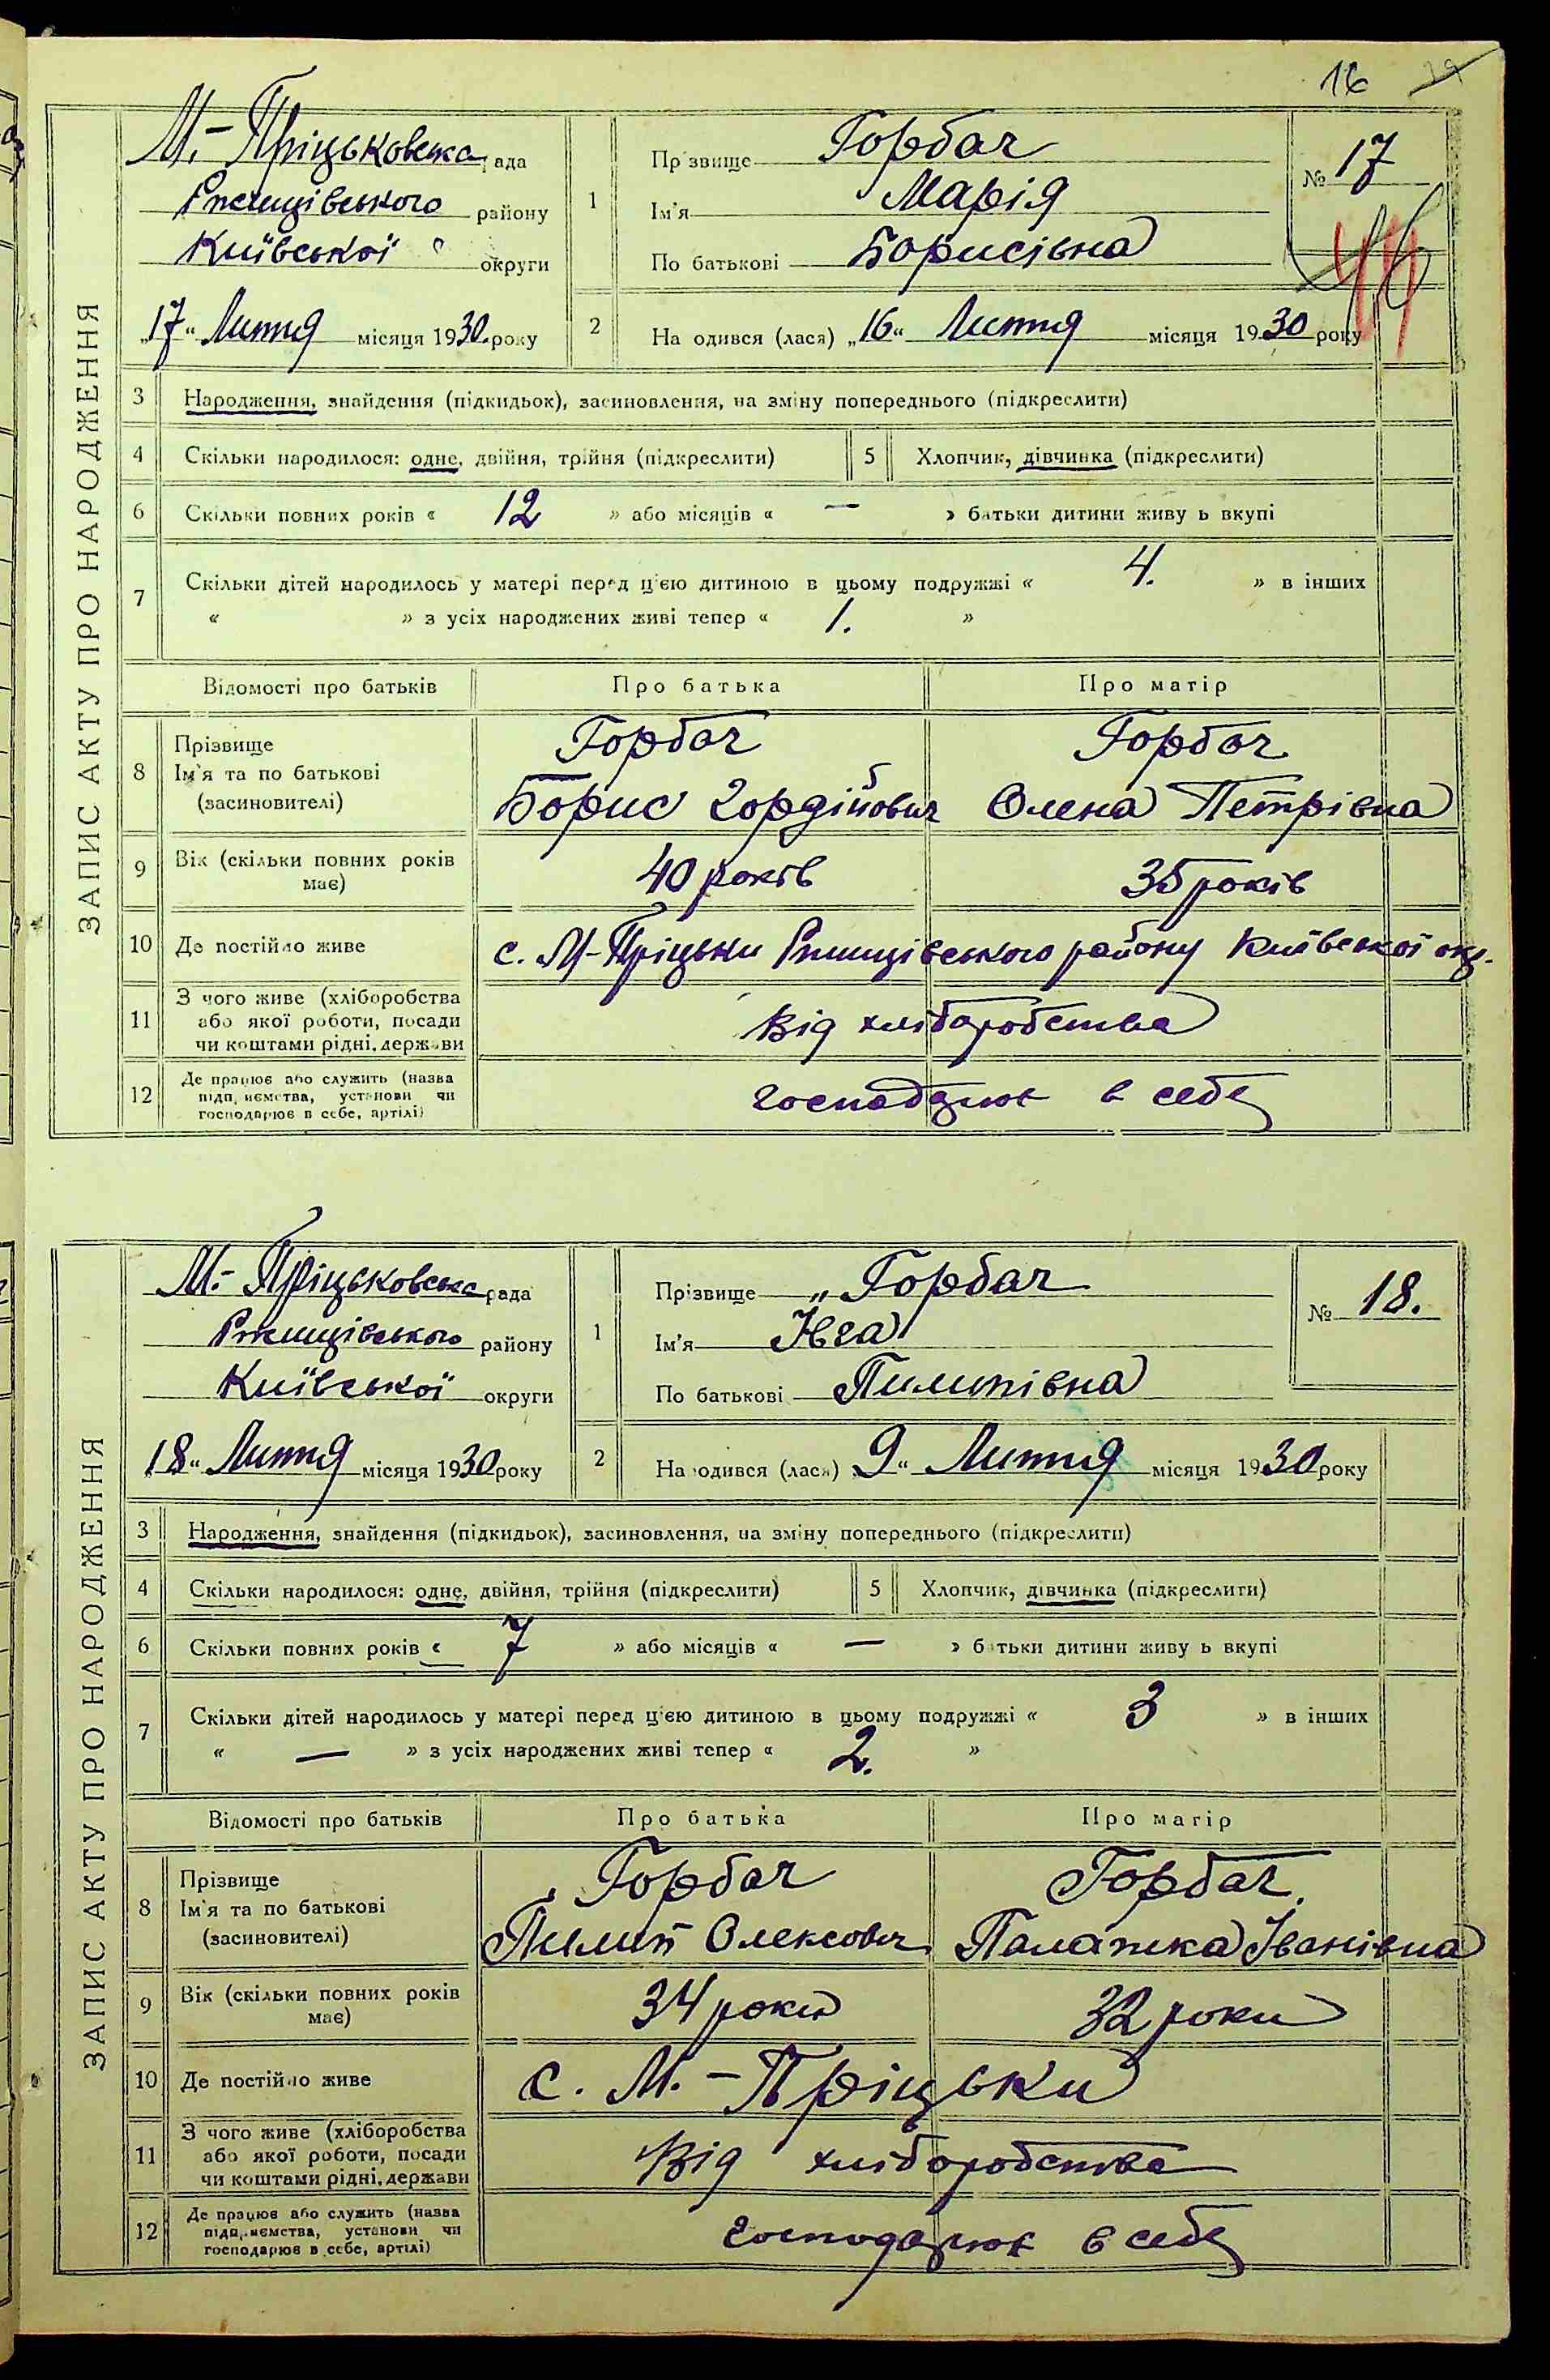 16
ЗАПИС АКТУ ПРО НАРОДЖЕННЯ
М.-Пріцьковська рада
Ржищівського району
Київської округи
„17“ Липня місяця 1930 року
1 Прізвище Горбач
Ім'я Марія
По батькові Борисівна
№ 17
2 Народився (лася) „16“ Липня місяця 1930 року
3 Народження, знайдення (підкидьок), засиновлення, на зміну попереднього (підкреслити)
4 Скільки народилося: одне, двійня, трійня (підкреслити) 5 Хлопчик, дівчинка (підкреслити)
6 Скільки повних років « 12 » або місяців « — » батьки дитини живуть вкупі
7 Скільки дітей народилось у матері перед цією дитиною в цьому подружжі « 4. » в інших
« » з усіх народжених живі тепер « 1. »
Відомості про батьків Про батька Про матір
8 Прізвище Ім'я та по батькові (засиновителі)
Горбач Горбач
Борис Гордійович Олена Петрівна
9 Вік (скільки повних років має) 40 років 35 років
10 Де постійно живе с. М-Пріцьки Ржищівського району Київської окр.
11 З чого живе (хліборобства або якої роботи, посади чи коштами рідні, держави Від хліборобства
12 Де працює або служить (назва підприємства, установи чи господарює в себе, артілі) господарює в себе
ЗАПИС АКТУ ПРО НАРОДЖЕННЯ
М.-Пріцьковська рада
Ржищівського району
Київської округи
18“ Липня місяця 1930 року
1 Прізвище „Горбач
Ім'я Ївга
По батькові Пилипівна
№ 18.
2 Народився (лася) 9“ Липня місяця 1930 року
3 Народження, знайдення (підкидьок), засиновлення, на зміну попереднього (підкреслити)
4 Скільки народилося: одне, двійня, трійня (підкреслити) 5 Хлопчик, дівчинка (підкреслити)
6 Скільки повних років « 7 » або місяців « — » батьки дитини живуть вкупі
7 Скільки дітей народилось у матері перед цією дитиною в цьому подружжі « 3 » в інших
« — » з усіх народжених живі тепер « 2. »
Відомості про батьків Про батька Про матір
8 Прізвище Ім'я та по батькові (засиновителі)
Горбач Горбач
Пилип Олексович Палажка Іванівна
9 Вік (скільки повних років має) 34 роки 32 роки
10 Де постійно живе с. М.-Пріцьки
11 З чого живе (хліборобства або якої роботи, посади чи коштами рідні, держави Від хліборобства
12 Де працює або служить (назва підприємства, установи чи господарює в себе, артілі) господарює в себе